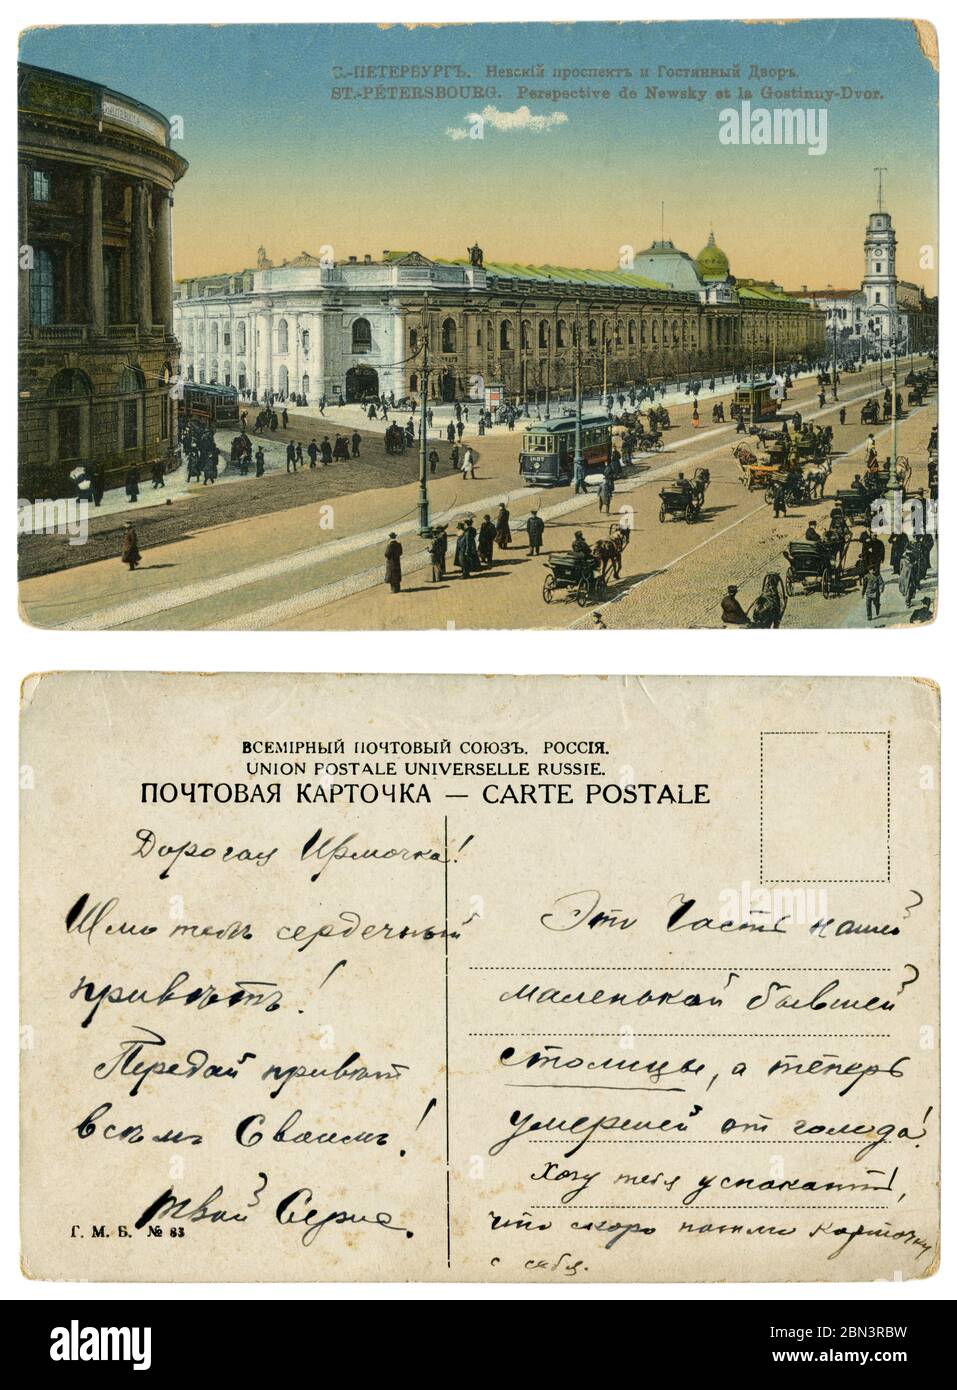 С.-ПЕТЕРБУРГЪ. Невскій проспектъ и Гостинный Дворъ.
ST.-PÉTERSBOURG. Perspective de Newsky et la Gostinny-Dvor.
alamy
ВСЕМІРНЫЙ ПОЧТОВЫЙ СОЮЗЪ. РОССІЯ.
UNION POSTALE UNIVERSELLE RUSSIE.
ПОЧТОВАЯ КАРТОЧКА — CARTE POSTALE
Дорогая Ирмочка!
Шлю тебѣ сердечный
привѣтъ!
Передай привѣт
всѣмъ Своимъ!
Твой Сержа.
Г. М. Б. № 83
Это Часть нашей
маленькой бывшей
столицы, а теперь
умершей от голода!
Хочу тебя успокоить,
что скоро пошлю карточку
с себя.
alamy
Image ID: 2BN3RBW
www.alamy.com